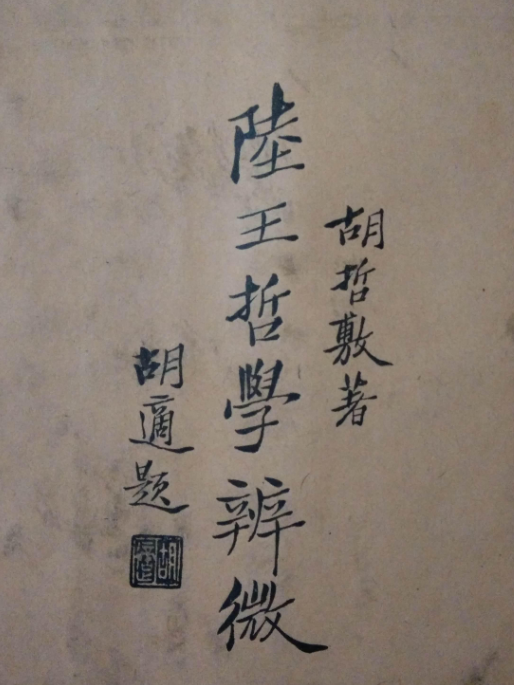 胡哲敷著
陸王哲學辨微
胡適題
胡適